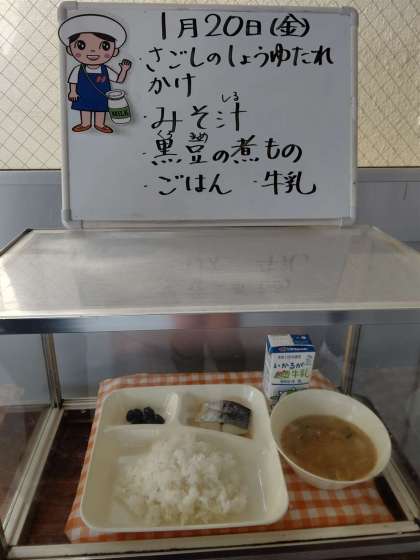 1月20日(金)
・さごしのしょうゆたれ
かけ
・みそ汁
しる
・黒豆の煮もの
くろまめ
・ごはん ・牛乳
MILK
いかるが
牛乳